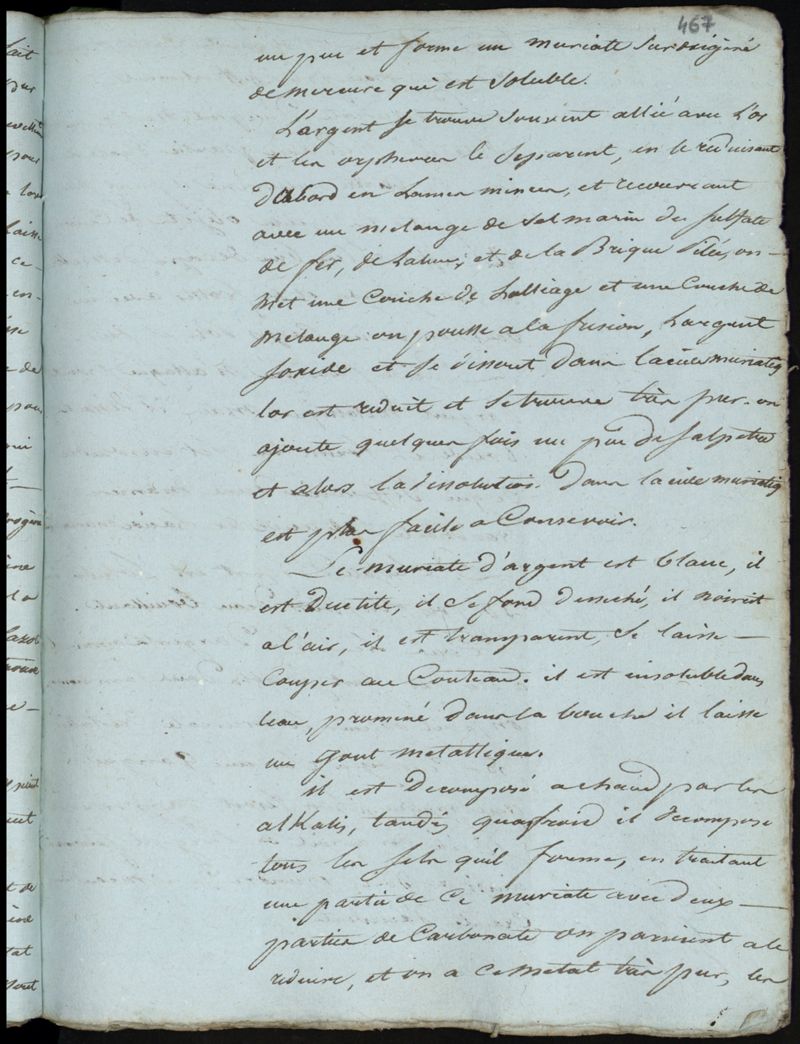 467
un peu et forme un muriate suroxigené
de mercure qui est soluble.
L'argent se trouve souvent allié avec L'or
et les orphevres le separent, en le reduisant
Dabord en Lames minces, et recouvrant
avec un melange de sel marin de sulfate
de fer, de et de la Brique Pilée, on
met une Couche de Lalliage et une Couche de
melange on pousse a la fusion, Largent
soxide et se dissout dans lacide muriatiq
lor est reduit et se trouve très pur. on
ajoute quelques fois un peu de salpetre
et alors la dissolution dans lacide muriatiq
est plus facile a Conservoir.
Le muriate d'argent est blanc, il
est Ductile, il se fond desseché, il noircit
a l'air, il est transparent, se laisse
Couper au Couteau. il est insoluble dans
leau, prominé dans la bouche il laisse
un gout metallique.
il est Decomposé a chaud par les
alKalis, tandis qua froid il decompose
tous les sels quil forme, en traitant
une partie de ce muriate avec deux
parties de Carbonate on parvient a le
reduire, et on a ce metal très pur, les